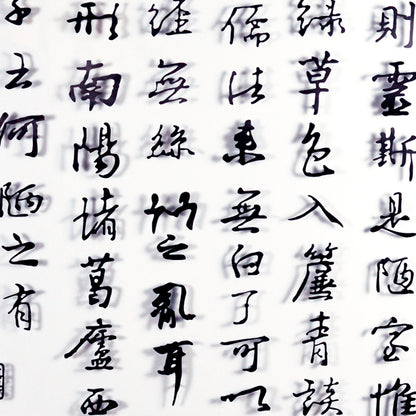 則靈斯是陋室惟
綠草色入簾青談
儒往来無白丁可以
經無絲竹之亂耳
形南陽諸葛廬西
子云何陋之有